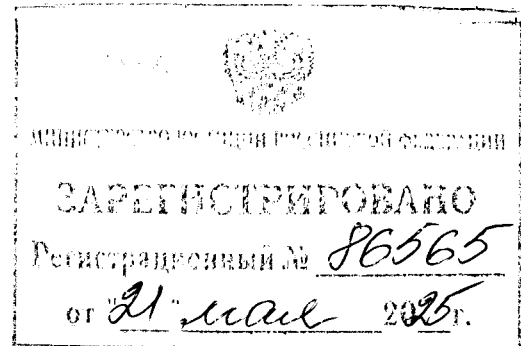 МИНИСТЕРСТВО ЮСТИЦИИ РОССИЙСКОЙ ФЕДЕРАЦИИ
ЗАРЕГИСТРИРОВАНО
Регистрационный № 86565
от "21" мая 2025г.